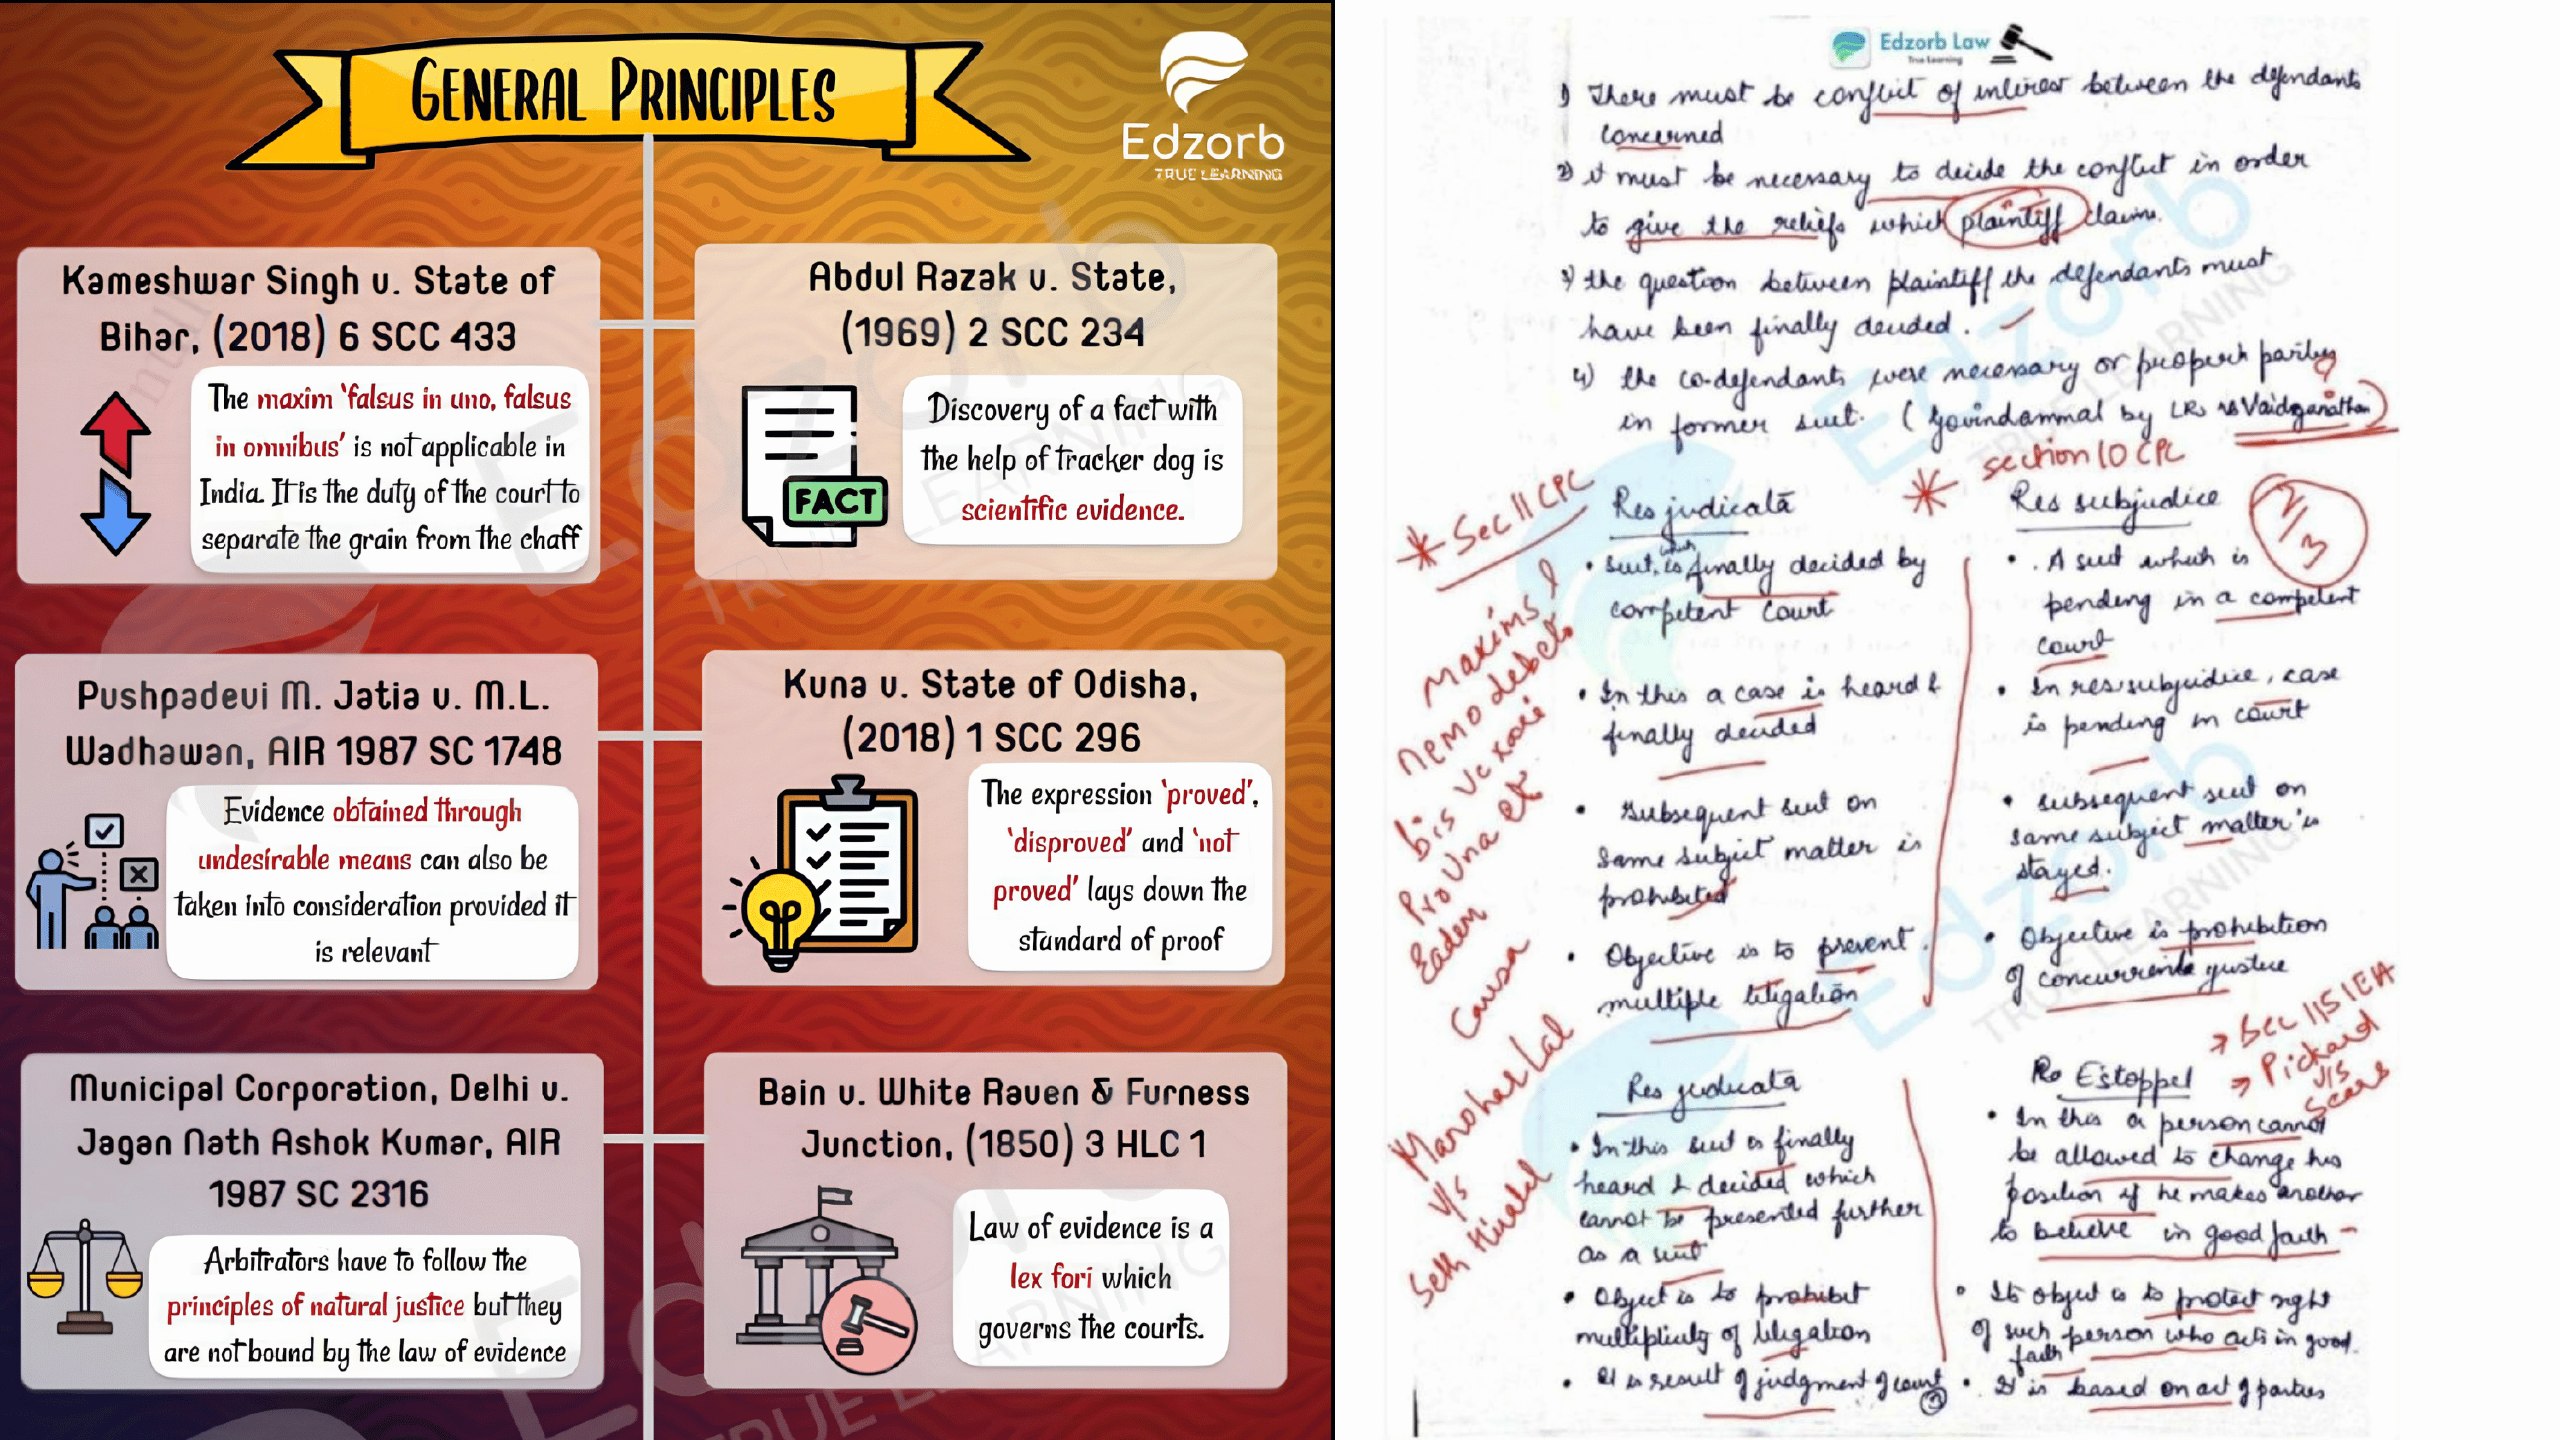 GENERAL PRINCIPLES
Edzorb
TRUE LEARNING
Kameshwar Singh v. State of
Bihar, (2018) 6 SCC 433
The maxim 'falsus in uno, falsus
in omnibus' is not applicable in
India. It is the duty of the court to
separate the grain from the chaff
Abdul Razak v. State,
(1969) 2 SCC 234
FACT
Discovery of a fact with
the help of tracker dog is
scientific evidence.
Pushpadevi M. Jatia v. M.L.
Wadhawan, AIR 1987 SC 1748
Evidence obtained through
undesirable means can also be
taken into consideration provided it
is relevant
Kuna v. State of Odisha,
(2018) 1 SCC 296
The expression 'proved',
'disproved' and 'not
proved' lays down the
standard of proof
Municipal Corporation, Delhi v.
Jagan Nath Ashok Kumar, AIR
1987 SC 2316
Arbitrators have to follow the
principles of natural justice but they
are not bound by the law of evidence
Bain v. White Raven & Furness
Junction, (1850) 3 HLC 1
Law of evidence is a
lex fori which
governs the courts.
Edzorb Law
True Learning
1) There must be conflict of interest between the defendants
concerned
2) it must be necessary to decide the conflict in order
to give the reliefs which plaintiff claims.
3) the question between plaintiff the defendants must
have been finally decided.
4) the co-defendants were necessary or proper parties
in former suit. (Govindammal by LRs vs Vaidyanathan)
* Sec 11 CPC
* section 10 CPC
Res judicata
• suit is finally decided by
competent court
• In this a case is heard &
finally decided
• Subsequent suit on
same subject matter is
prohibited
• Objective is to prevent
multiple litigation
Res subjudice
2/3
• A suit which is
pending in a competent
court
• In res subjudice, case
is pending in court
• subsequent suit on
same subject matter is
stayed.
• Objective is prohibition
of concurrent justice
maxims
nemo debet
bis vexari
Pro Una et
Eadem
Causa
Manohar Lal
v/s
Seth Hiralal
Res judicata
• In this suit is finally
heard & decided which
cannot be presented further
as a suit
• Object is to prohibit
multiplicity of litigation
• It is result of judgment of court
Estoppel
→ Sec 115 IEA
→ Pickard
v/s
Sears
• In this a person cannot
be allowed to change his
position if he makes another
to believe in good faith -
• Its object is to protect right
of such person who acts in good
faith
• It is based on act of parties